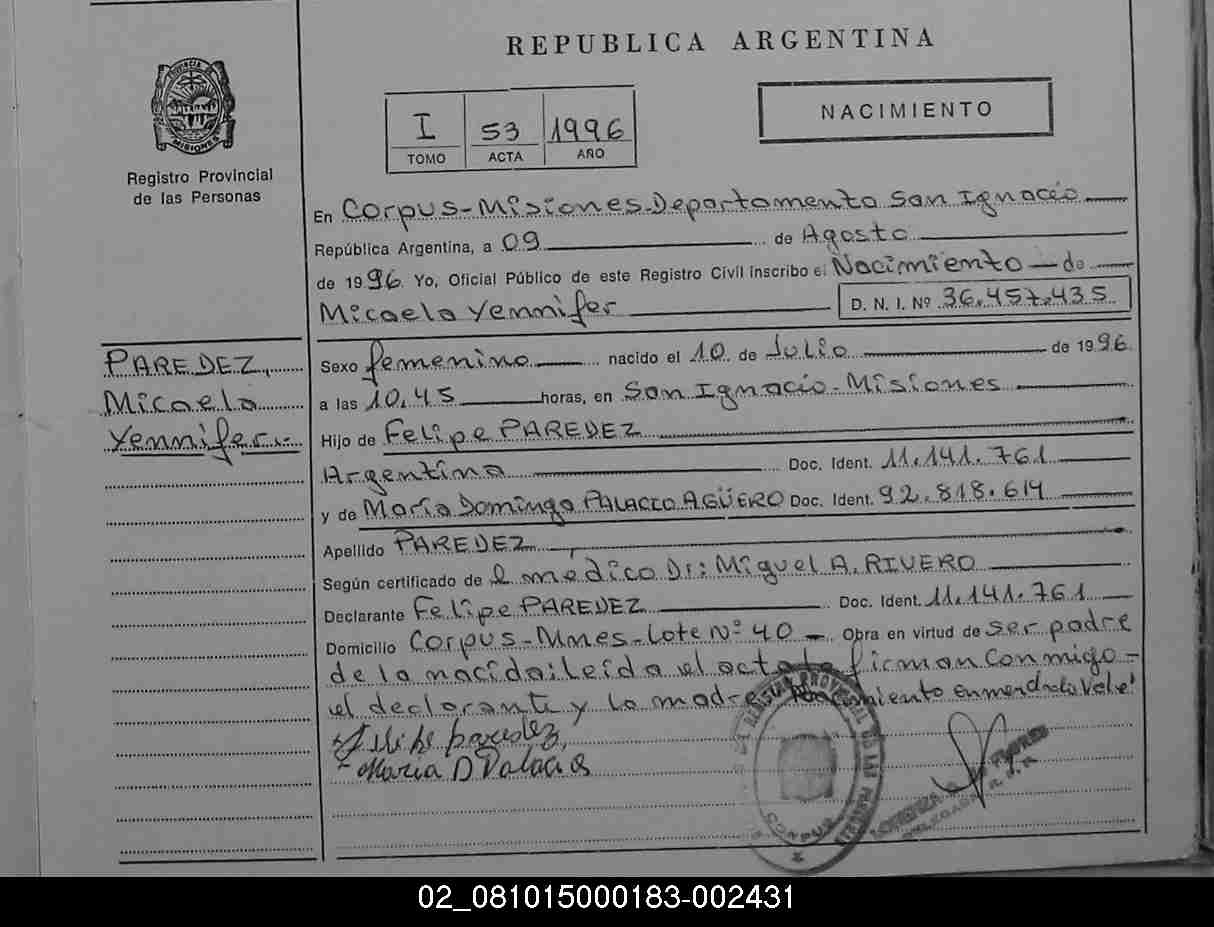 REPUBLICA ARGENTINA
PROVINCIA DE
MISIONES
Registro Provincial
de las Personas
I 53 1996
TOMO ACTA AÑO
NACIMIENTO
En Corpus-Misiones-Departamento San Ignacio
República Argentina, a 09 de Agosto
de 1996. Yo, Oficial Público de este Registro Civil inscribo el Nacimiento de
Micaela Yennifer D. N. I. Nº 36.457.435
PAREDEZ,
Micaela
Yennifer.-
Sexo femenino nacido el 10 de Julio de 1996.
a las 10,45 horas, en San Ignacio-Misiones
Hijo de Felipe PAREDEZ
Argentino Doc. Ident. 11.141.761
y de María Dominga PALACIO AGÜERO Doc. Ident. 92.818.614
Apellido PAREDEZ
Según certificado de el medico Dr: Miguel A. RIVERO
Declarante Felipe PAREDEZ Doc. Ident. 11.141.761
Domicilio Corpus-Mnes-Lote Nº 40 Obra en virtud de ser padre
de la nacida: leida el acta firman conmigo
el declarante y la madre enmendado Vale
Felipe paredez
Maria D Palacio
CORPUS
02_081015000183-002431